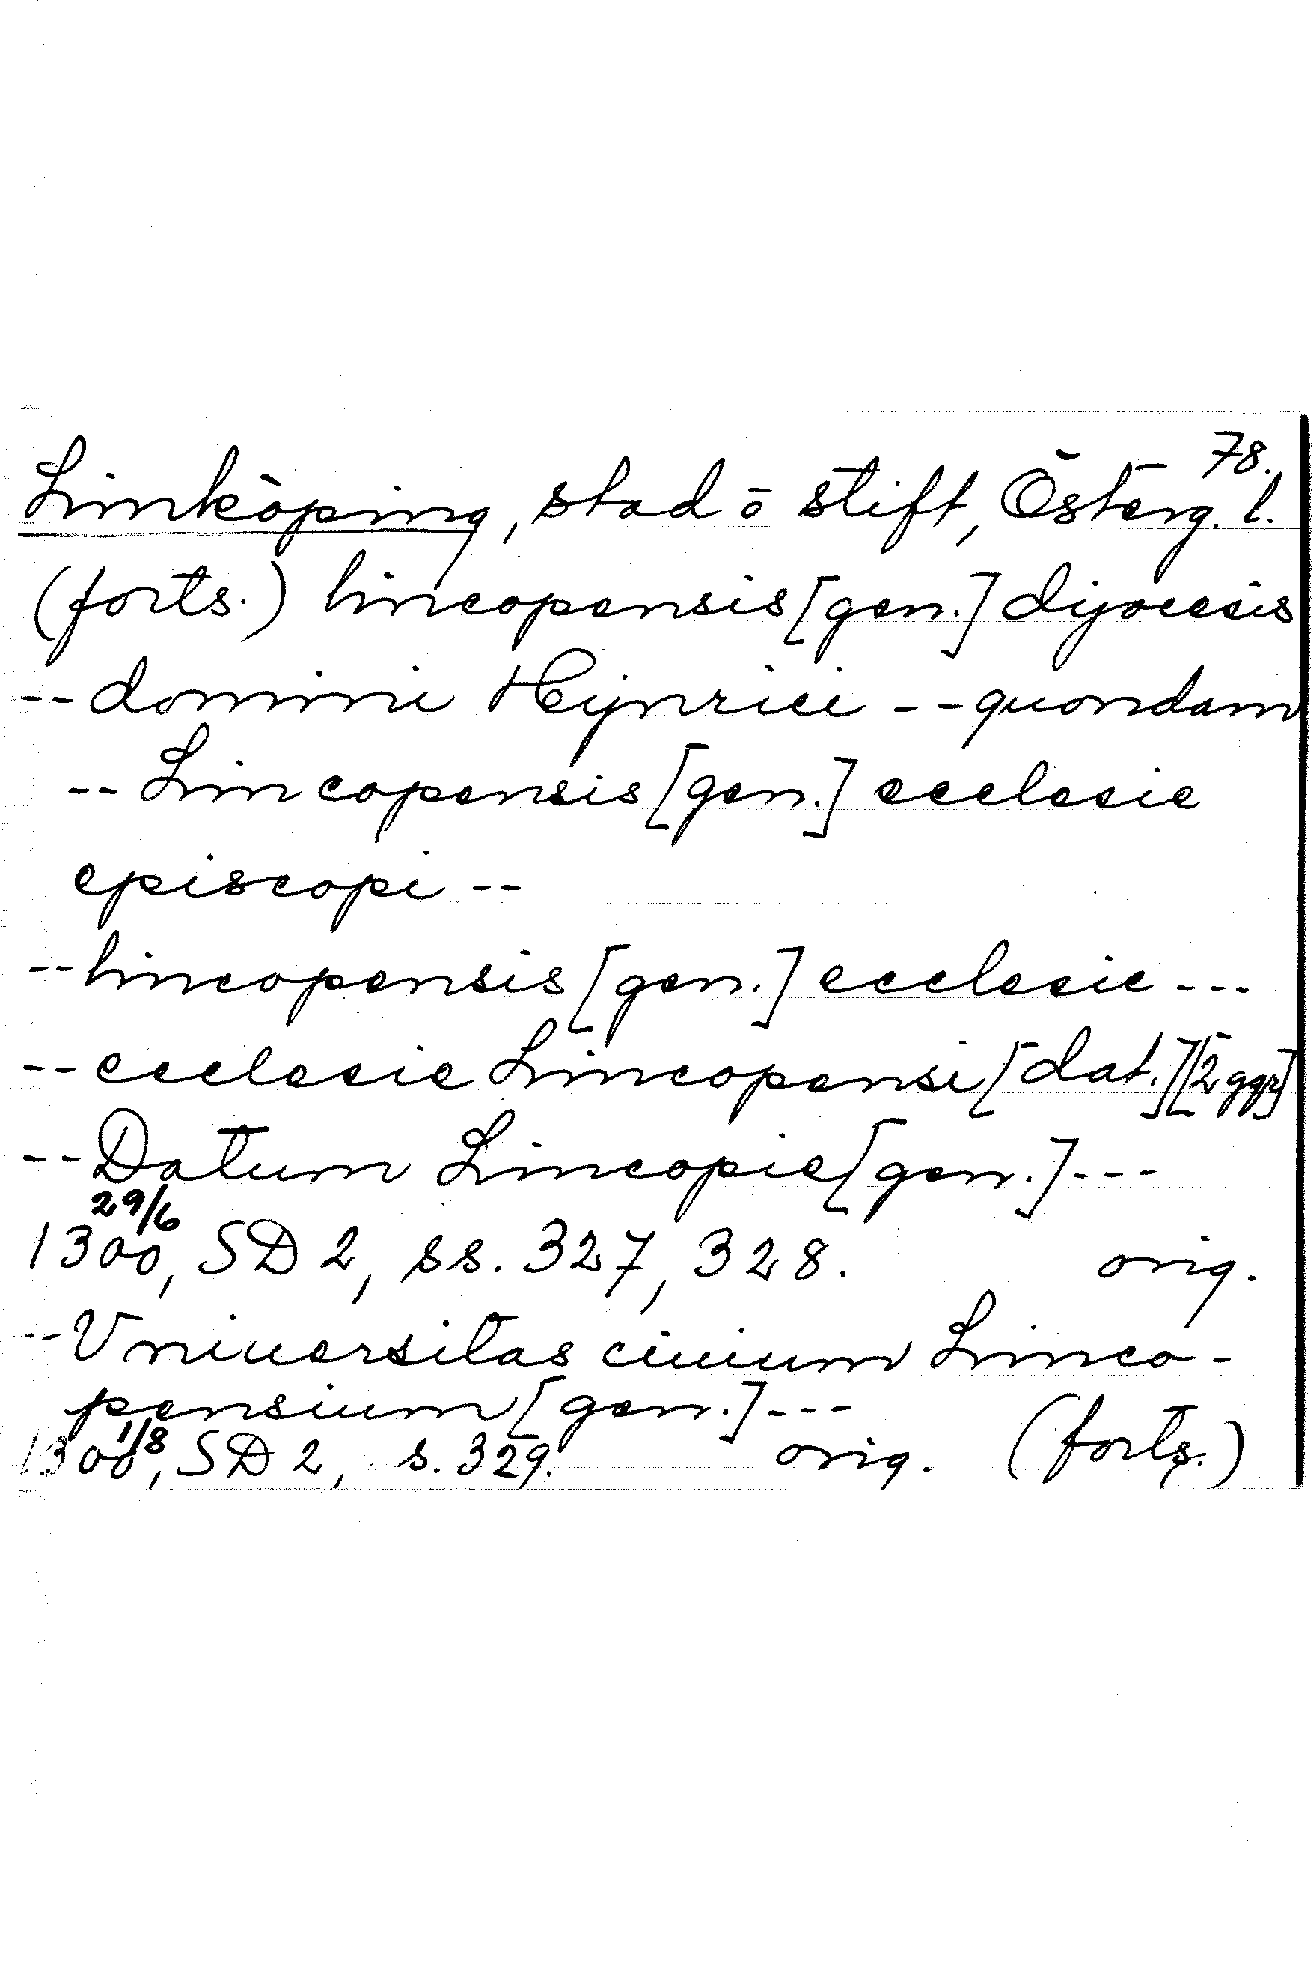 78.
Linköping, stad o stift, Österg. l.
(forts.) lincopensis [gen.] dyocesis
-- domini Hijnrici -- quondam
-- Lincopensis [gen.] ecclesie
episcopi --
-- lincopensis [gen.] ecclesie ---
-- ecclesie Lincopensi [dat.] [2 ggr]
-- Datum Lincopie [gen.] ---
29/6
1300, SD 2, ss. 327, 328. orig.
-- Vniuersitas ciuium Linco-
pensium [gen.] ---
1/8
1300, SD 2, s. 329. orig. (forts.)